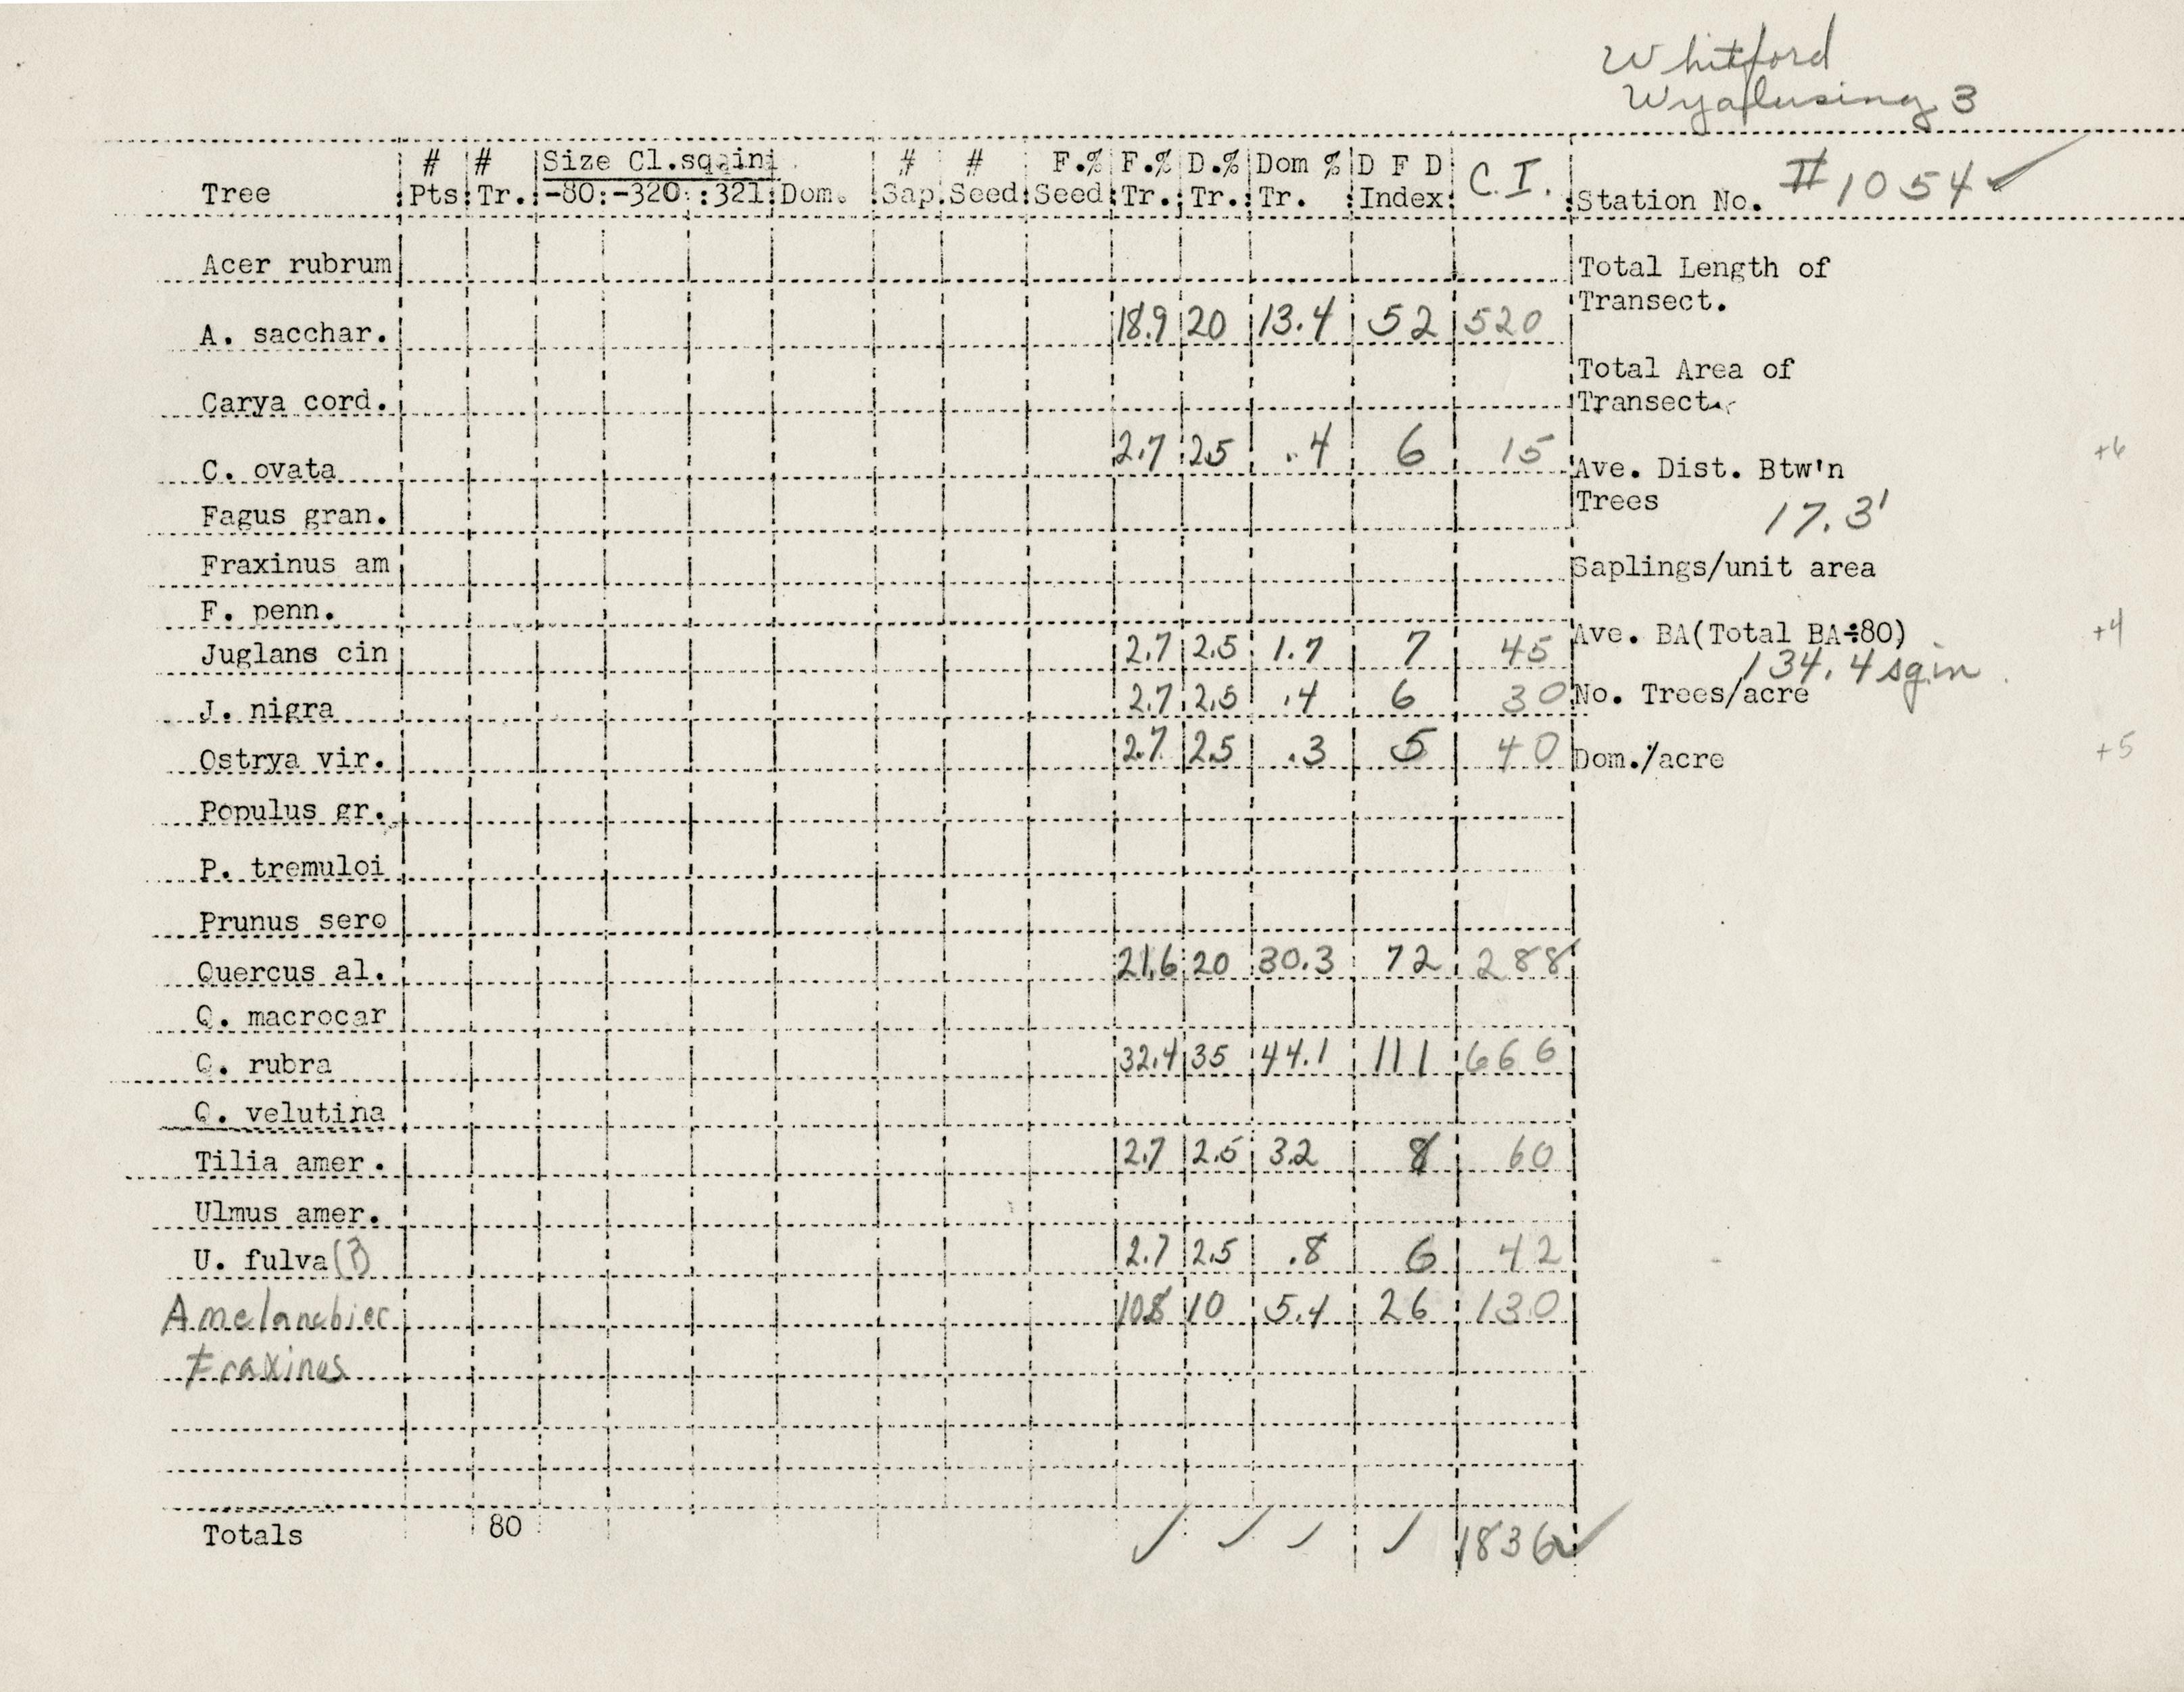 Whitford
Wyalusing 3
Tree # Pts # Tr. Size Cl.sq.in -80 -320 321 Dom. # Sap. # Seed F.% Seed F.% Tr. D.% Tr. Dom % Tr. D F D Index C.I. Station No. #1054 ✓
Acer rubrum
Total Length of
Transect.
A. sacchar. 18.9 20 13.4 52 520
Total Area of
Transect.
Carya cord.
C. ovata 2.7 2.5 .4 6 15
+6
Ave. Dist. Btw'n
Trees 17.3'
Fagus gran.
Fraxinus am
Saplings/unit area
F. penn.
Ave. BA(Total BA÷80)
134.4 sq in
+4
Juglans cin 2.7 2.5 1.7 7 45
J. nigra 2.7 2.5 .4 6 30
No. Trees/acre
Ostrya vir. 2.7 2.5 .3 5 40
Dom./acre
+5
Populus gr.
P. tremuloi
Prunus sero
Quercus al. 21.6 20 30.3 72 288
Q. macrocar
Q. rubra 32.4 35 44.1 111 666
Q. velutina
Tilia amer. 2.7 2.5 3.2 8 60
Ulmus amer.
U. fulva (?) 2.7 2.5 .8 6 42
Amelanchier 10.8 10 5.4 26 130
Fraxinus
Totals 80 ✓ ✓ ✓ ✓ 1836 ✓